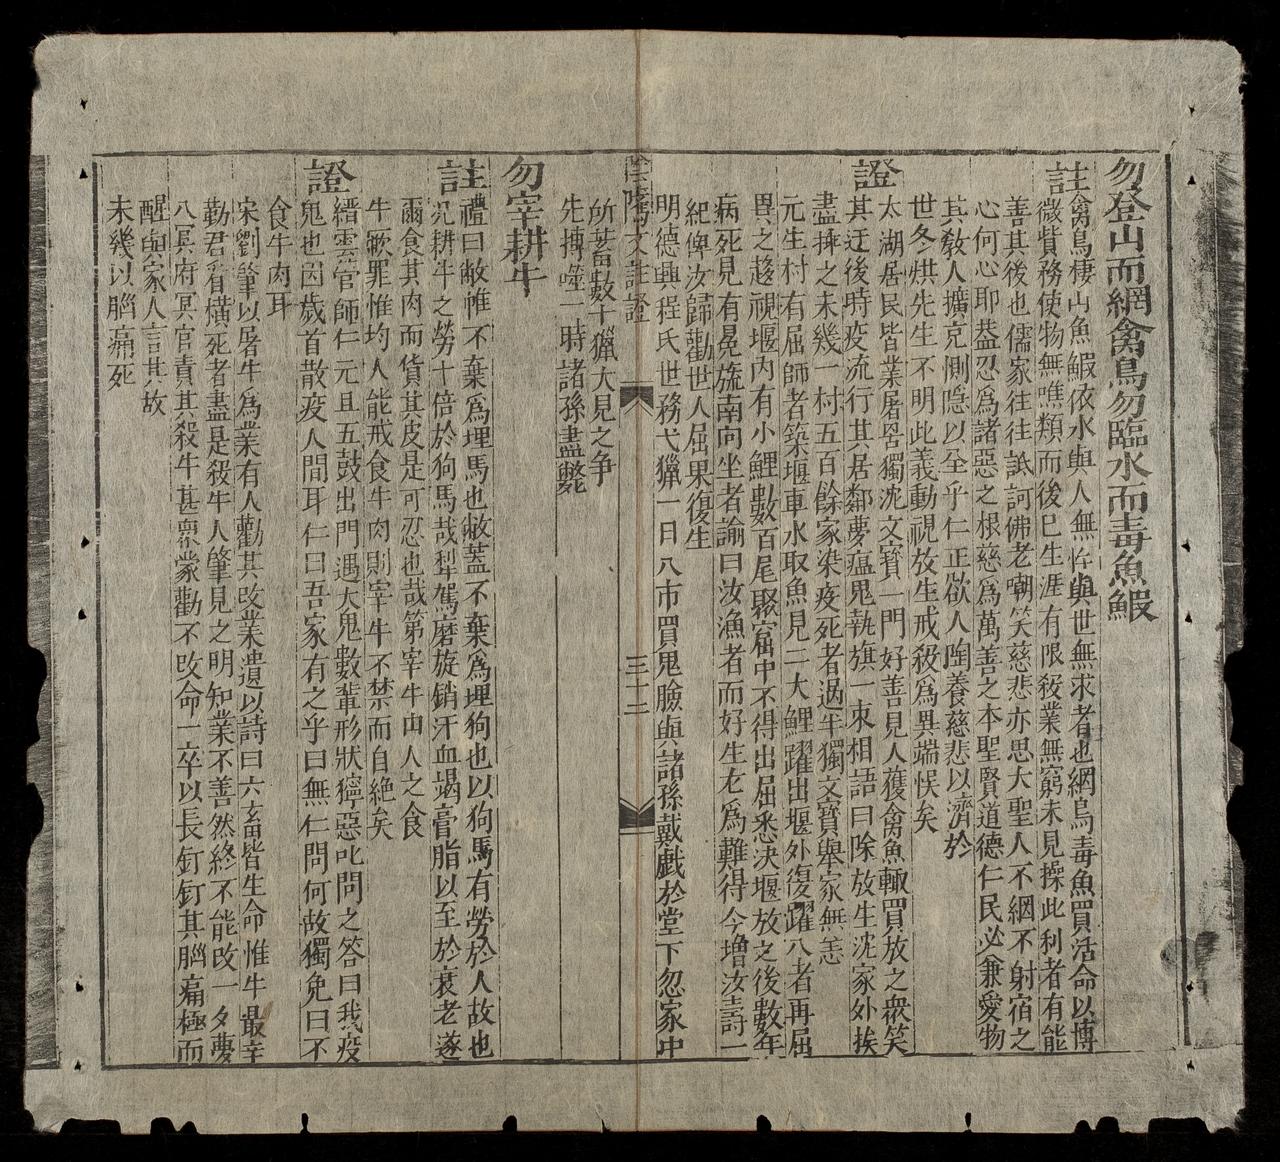 勿登山而網禽鳥勿臨水而毒魚鰕
註禽鳥棲山魚鰕依水與人無忤與世無求者也網鳥毒魚買活命以博
微貲務使物無噍類而後已生涯有限殺業無窮未見操此利者有能
善其後也儒家往往詆訶佛老嘲笑慈悲亦思大聖人不綱不射宿之
心何心耶葢忍爲諸惡之根慈爲萬善之本聖賢道德仁民必兼愛物
其教人擴充惻隱以全乎仁正欲人陶養慈悲以濟於
世冬烘先生不明此義動視放生戒殺爲異端悞矣
證太湖居民皆業屠罟獨沈文寳一門好善見人獲禽魚輙買放之衆笑
其迂後時疫流行其居鄰夢瘟鬼執旗一束相語曰除放生沈家外挨
盡揷之未幾一村五百餘家染疫死者過半獨文寳舉家無恙
元生村有屈師者築堰車水取魚見二大鯉躍出堰外復躍入者再屈
異之趍視堰內有小鯉數百尾聚窟中不得出屈悉決堰放之後數年
病死見有冕旒南向坐者諭曰汝漁者而好生尤爲難得今增汝壽一
紀俾汝歸勸世人屈果復生
明德興程氏世務弋獵一日入市買鬼臉與諸孫戴戯於堂下忽家中
陰隲文註證 三十二
所蓄數十獵犬見之争
先搏噬一時諸孫盡斃
勿宰耕牛
註禮曰敝帷不棄爲埋馬也敝蓋不棄爲埋狗也以狗馬有勞於人故也
况耕牛之勞十倍於狗馬哉犁駕磨旋銷汗血竭膏脂以至於衰老遂
爾食其肉而貨其皮是可忍也哉第宰牛由人之食
牛厥罪惟均人能戒食牛肉則宰牛不禁而自絶矣
證縉雲管師仁元旦五鼓出門遇大鬼數輩形狀獰惡叱問之答曰我疫
鬼也囙歲首散疫人間耳仁曰吾家有之乎曰無仁問何故獨免曰不
食牛肉耳
宋劉肇以屠牛爲業有人勸其改業遺以詩曰六畜皆生命惟牛最辛
勤君看橫死者盡是殺牛人肇見之明知業不善然終不能改一夕夢
入冥府冥官責其殺牛甚衆蒙勸不改命一卒以長釘釘其腦痛極而
醒與家人言其故
未幾以腦痛死